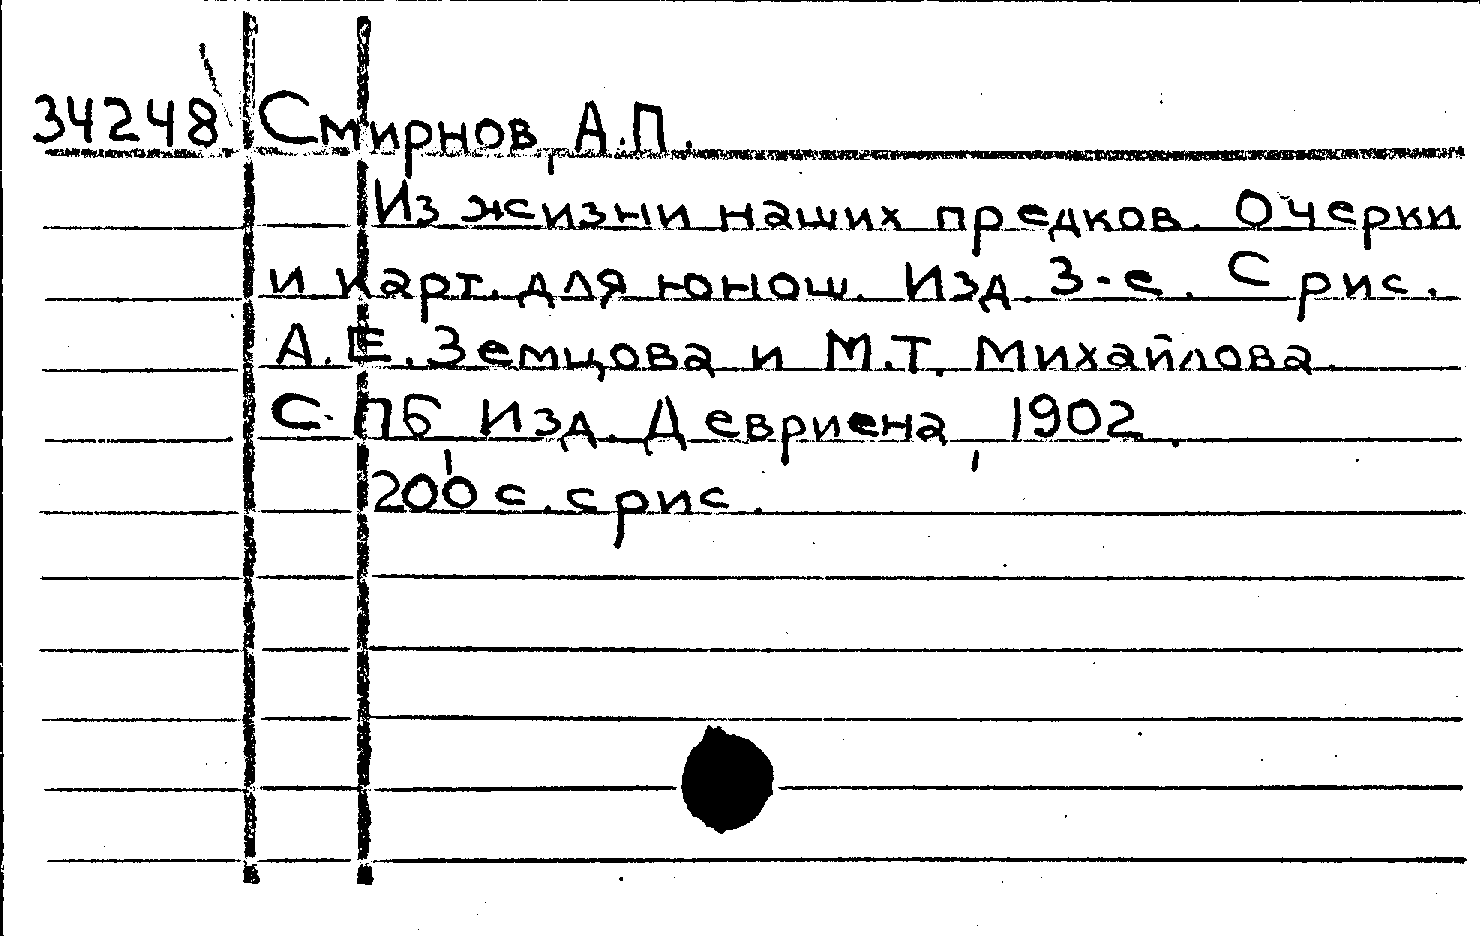 34248 Смирнов, А.П.
Из жизни наших предков. Очерки
и карт. для юнош. Изд. 3-е. С рис.
А.Е. Земцова и М.Т. Михайлова.
С-ПБ Изд. Девриена, 1902.
200 с. с рис.